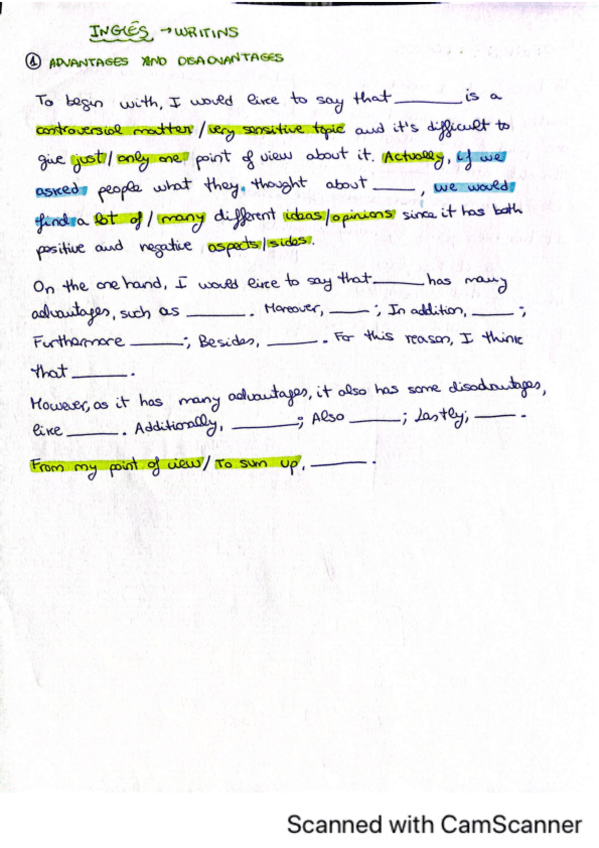 INGLÉS → WRITINS
① ADVANTAGES AND DISADVANTAGES
To begin with, I would like to say that ______ is a
controversial matter / very sensitive topic and it's difficult to
give just / only one point of view about it. Actually, if we
asked people what they thought about ____, we would
find a lot of / many different ideas/opinions since it has both
positive and negative aspects/sides.
On the one hand, I would like to say that ____ has many
advantages, such as ____. Moreover, ____; In addition, ____;
Furthermore ____; Besides, ____. For this reason, I think
that ____.
However, as it has many advantages, it also has some disadvantages,
like ____. Additionally, ____; Also ____; Lastly, ____.
From my point of view / To sum up, ____.
Scanned with CamScanner